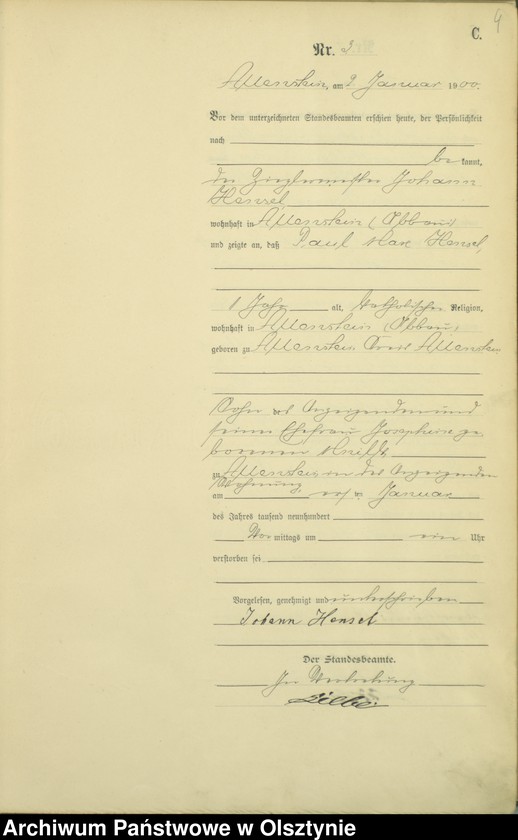 4
C.
Nr. 2
Allenstein, am 2 Januar 1900.
Vor dem unterzeichneten Standesbeamten erschien heute, der Persönlichkeit
nach
be kannt,
der Ziegelmeister Johann
Hensel
wohnhaft in Allenstein (Abbau)
und zeigte an, daß Paul Max Hensel,
1 Jahr alt, katholischer Religion,
wohnhaft in Allenstein (Abbau)
geboren zu Allenstein Kreis Allenstein
Sohn des Anzeigenden und
seiner Ehefrau Josephine ge-
borenen
zu Allenstein in des Anzeigenden
Wohnung
am Januar
des Jahres tausend neunhundert
Vor mittags um ein Uhr
verstorben sei
Vorgelesen, genehmigt und unterschrieben
Johann Hensel
Der Standesbeamte.
In Vertretung
Archiwum Państwowe w Olsztynie